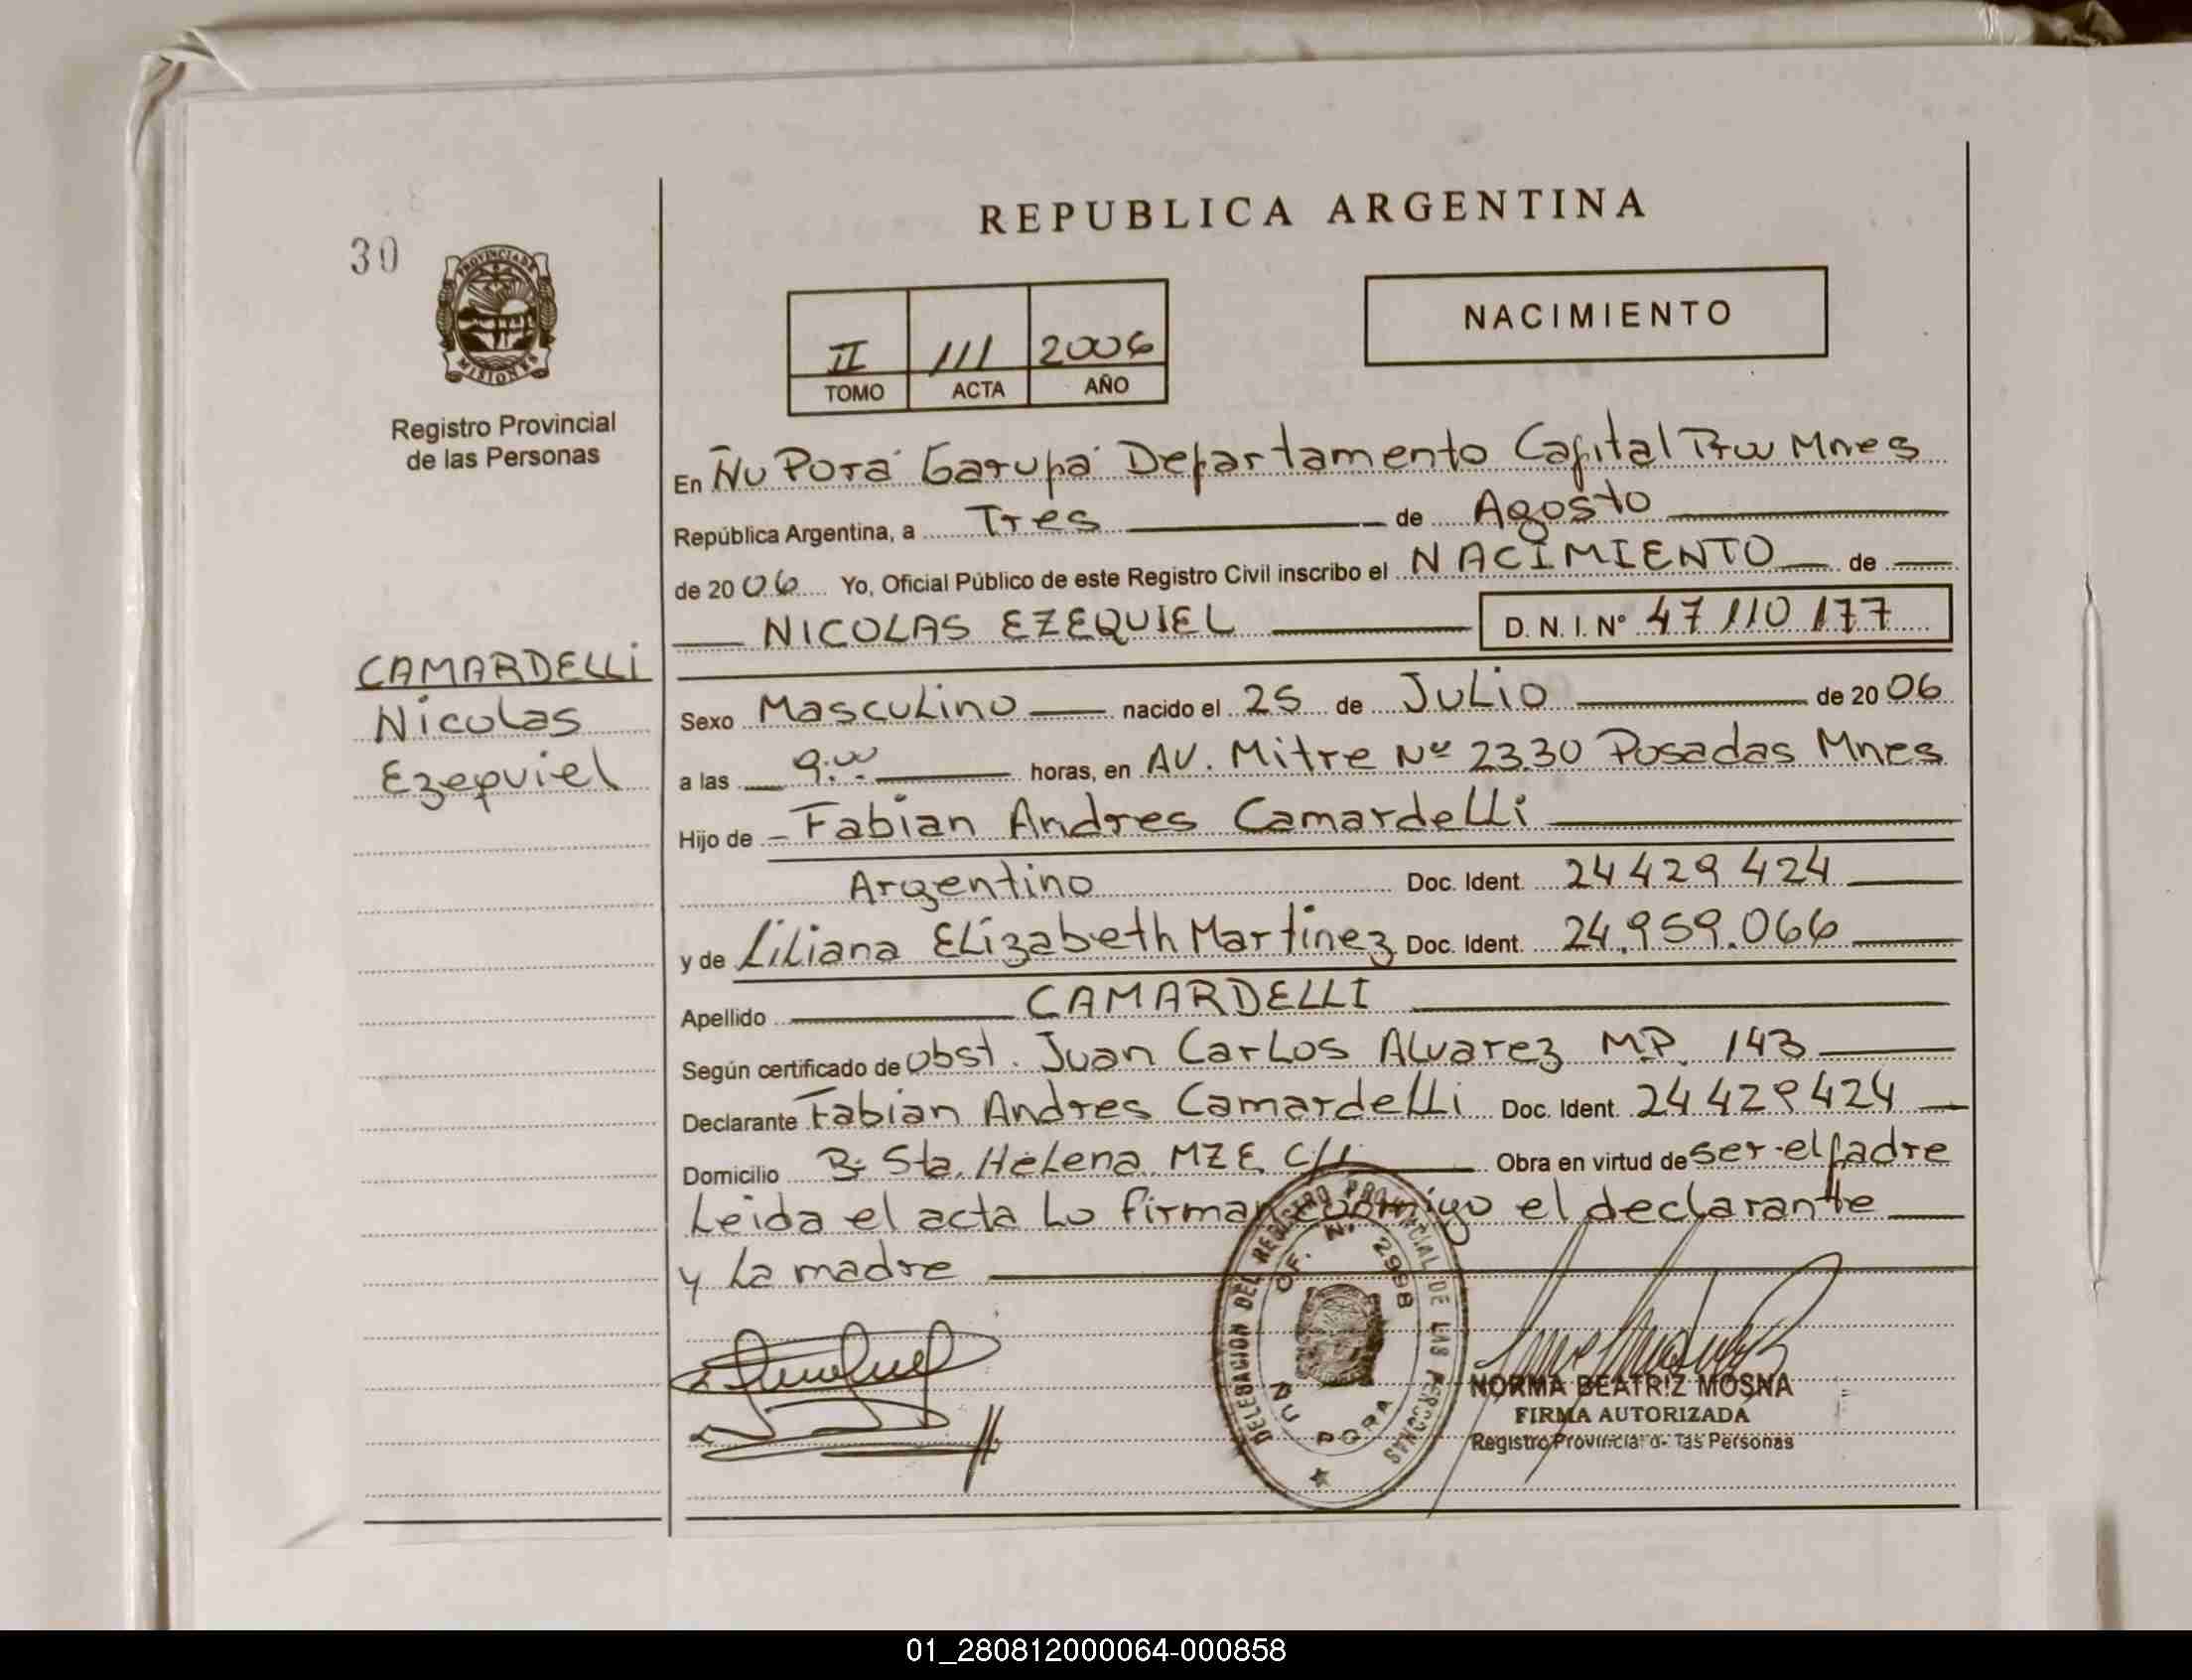 REPUBLICA ARGENTINA
30
PROVINCIA DE
MISIONES
Registro Provincial
de las Personas
NACIMIENTO
II 111 2006
TOMO ACTA AÑO
En Ñu Porá Garupá Departamento Capital Prov Mnes
República Argentina, a Tres de Agosto
de 2006 Yo, Oficial Público de este Registro Civil inscribo el NACIMIENTO de
NICOLAS EZEQUIEL D.N.I. Nº 47 110 177
CAMARDELLI
Nicolas
Ezequiel
Sexo Masculino nacido el 25 de Julio de 2006
a las 9:00 horas, en AV. Mitre Nº 2330 Posadas Mnes
Hijo de Fabian Andres Camardelli
Argentino Doc. Ident. 24 429 424
y de Liliana Elizabeth Martinez Doc. Ident. 24.959.066
Apellido CAMARDELLI
Según certificado de obst. Juan Carlos Alvarez M.P. 143
Declarante Fabian Andres Camardelli Doc. Ident. 24 429 424
Domicilio Bº Sta. Helena MZ E C/1 Obra en virtud de ser el padre
Leida el acta Lo firman conmigo el declarante
y La madre
DELEGACION DEL REGISTRO PROVINCIAL DE LAS PERSONAS
OF. N. 2998
ÑU PORA
NORMA BEATRIZ MOSNA
FIRMA AUTORIZADA
Registro Provincial de las Personas
01_280812000064-000858